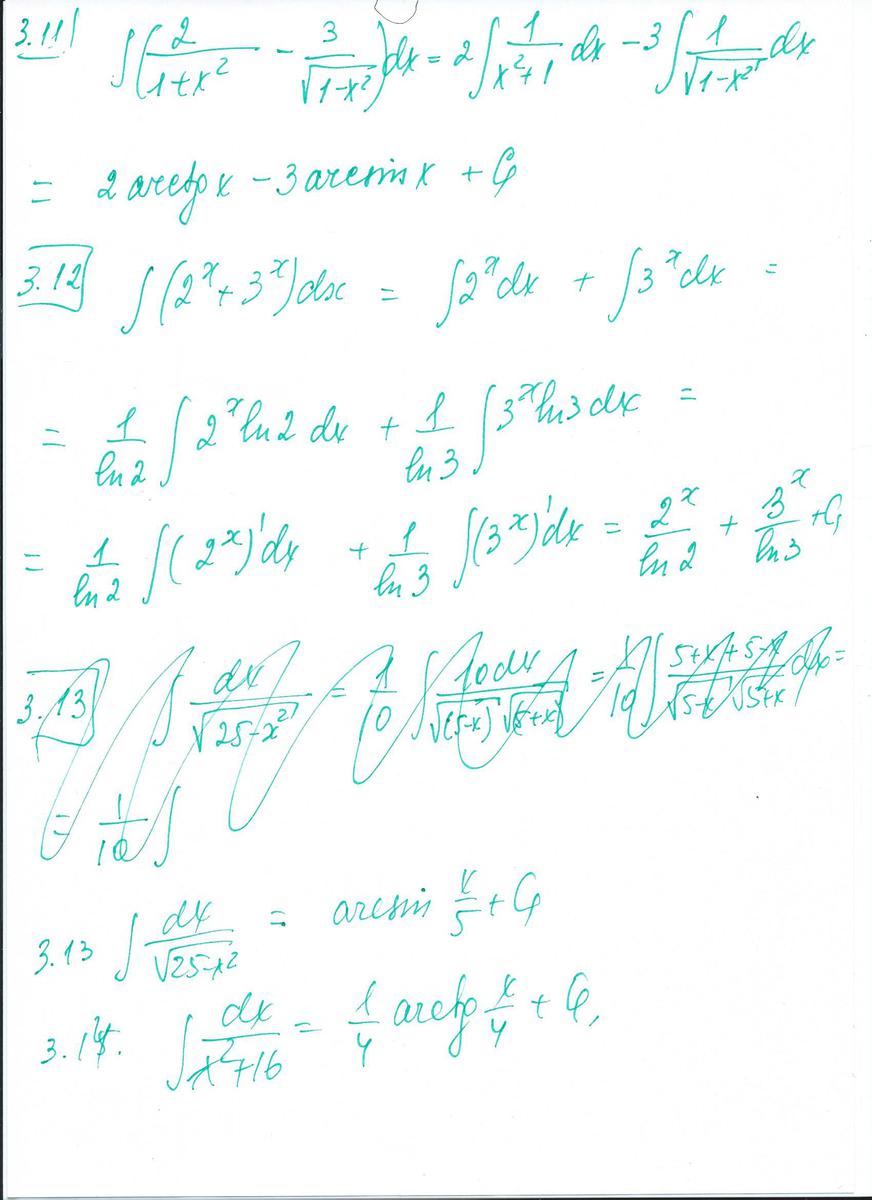 3.11 ∫(2/(1+x²) - 3/√(1-x²))dx = 2∫1/(x²+1) dx - 3∫1/√(1-x²) dx
= 2 arctg x - 3 arcsin x + C₁
3.12 ∫(2ˣ+3ˣ)dx = ∫2ˣdx + ∫3ˣdx =
= 1/ln2 ∫2ˣln2 dx + 1/ln3 ∫3ˣln3 dx =
= 1/ln2 ∫(2ˣ)'dx + 1/ln3 ∫(3ˣ)'dx = 2ˣ/ln2 + 3ˣ/ln3 + C₁
3.13 ∫dx/√(25-x²) = 1/10 ∫10dx/(√(5-x) √(5+x)) = 1/10 ∫(5+x+5-x)/(√(5-x) √(5+x)) dx =
= 1/10 ∫
3.13 ∫dx/√(25-x²) = arcsin x/5 + C₁
3.14. ∫dx/(x²+16) = 1/4 arctg x/4 + C₁,